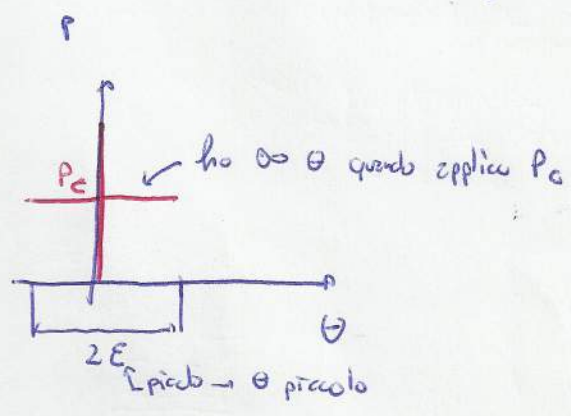 P
ho ∞ θ quando applico Pc
Pc
θ
2ε
piccolo → θ piccolo